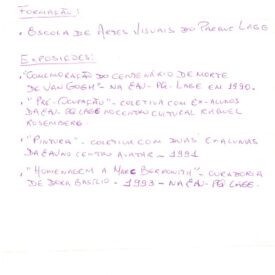 FORMAÇÃO:
• ESCOLA DE ARTES VISUAIS DO PARQUE LAGE
EXPOSIÇÕES:
• "COMEMORAÇÃO DO CENTENÁRIO DE MORTE
DE VAN GOGH" - NA EAV-PQ-LAGE EM 1990.
• "PRÉ-OCUPAÇÃO" - COLETIVA COM EX-ALUNOS
DA EAV-PQ LAGE NO CENTRO CULTURAL
ROSEMBERG.
• "PINTURA" - COLETIVA COM DUAS EX-ALUNAS
DA EAV NO CENTRO AVATAR - 1991
• "HOMENAGEM A MARC BERKOWITZ" - CURADORIA
DE DORA BASÍLIO - 1993 - NA EAV-PQ LAGE.